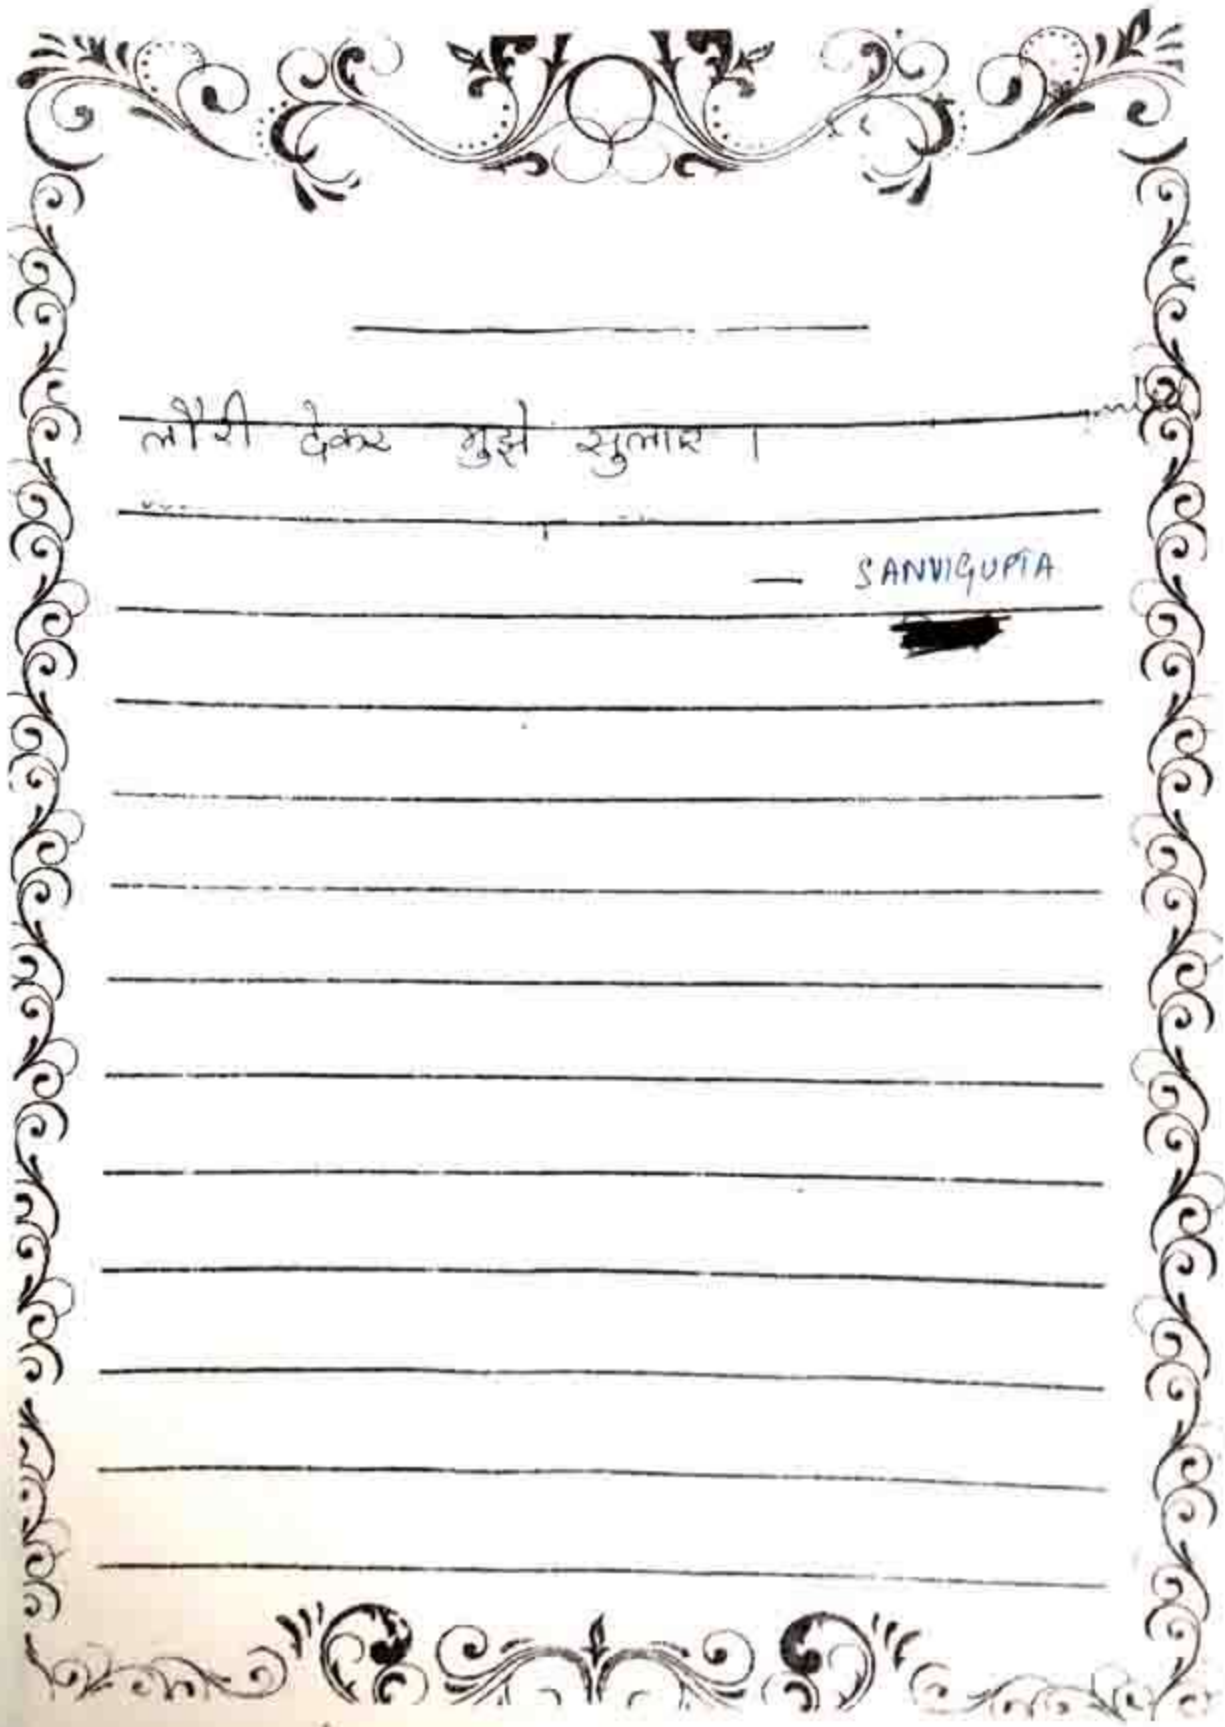 लौरी देकर मुझे सुलाए ।
— SANVI GUPTA